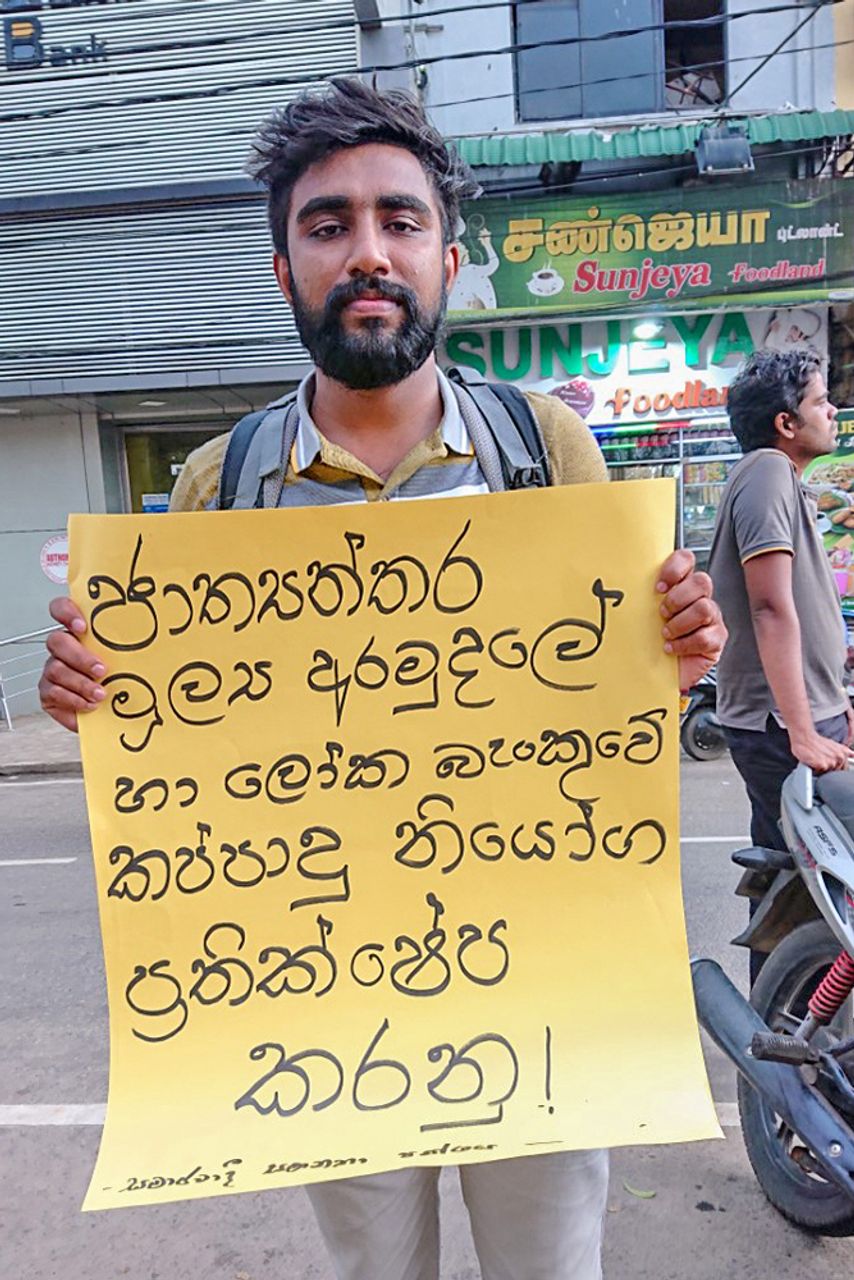 Bank
சண்ஜெயா புட்லான்ட்
Sunjeya Foodland
SUNJEYA
Foodland
ජාත්‍යන්තර
මූල්‍ය අරමුදලේ
හා ලෝක බැංකුවේ
කප්පාදු නියෝග
ප්‍රතික්ෂේප
කරනු!
- සමාජවාදී සමානතා පක්ෂය -